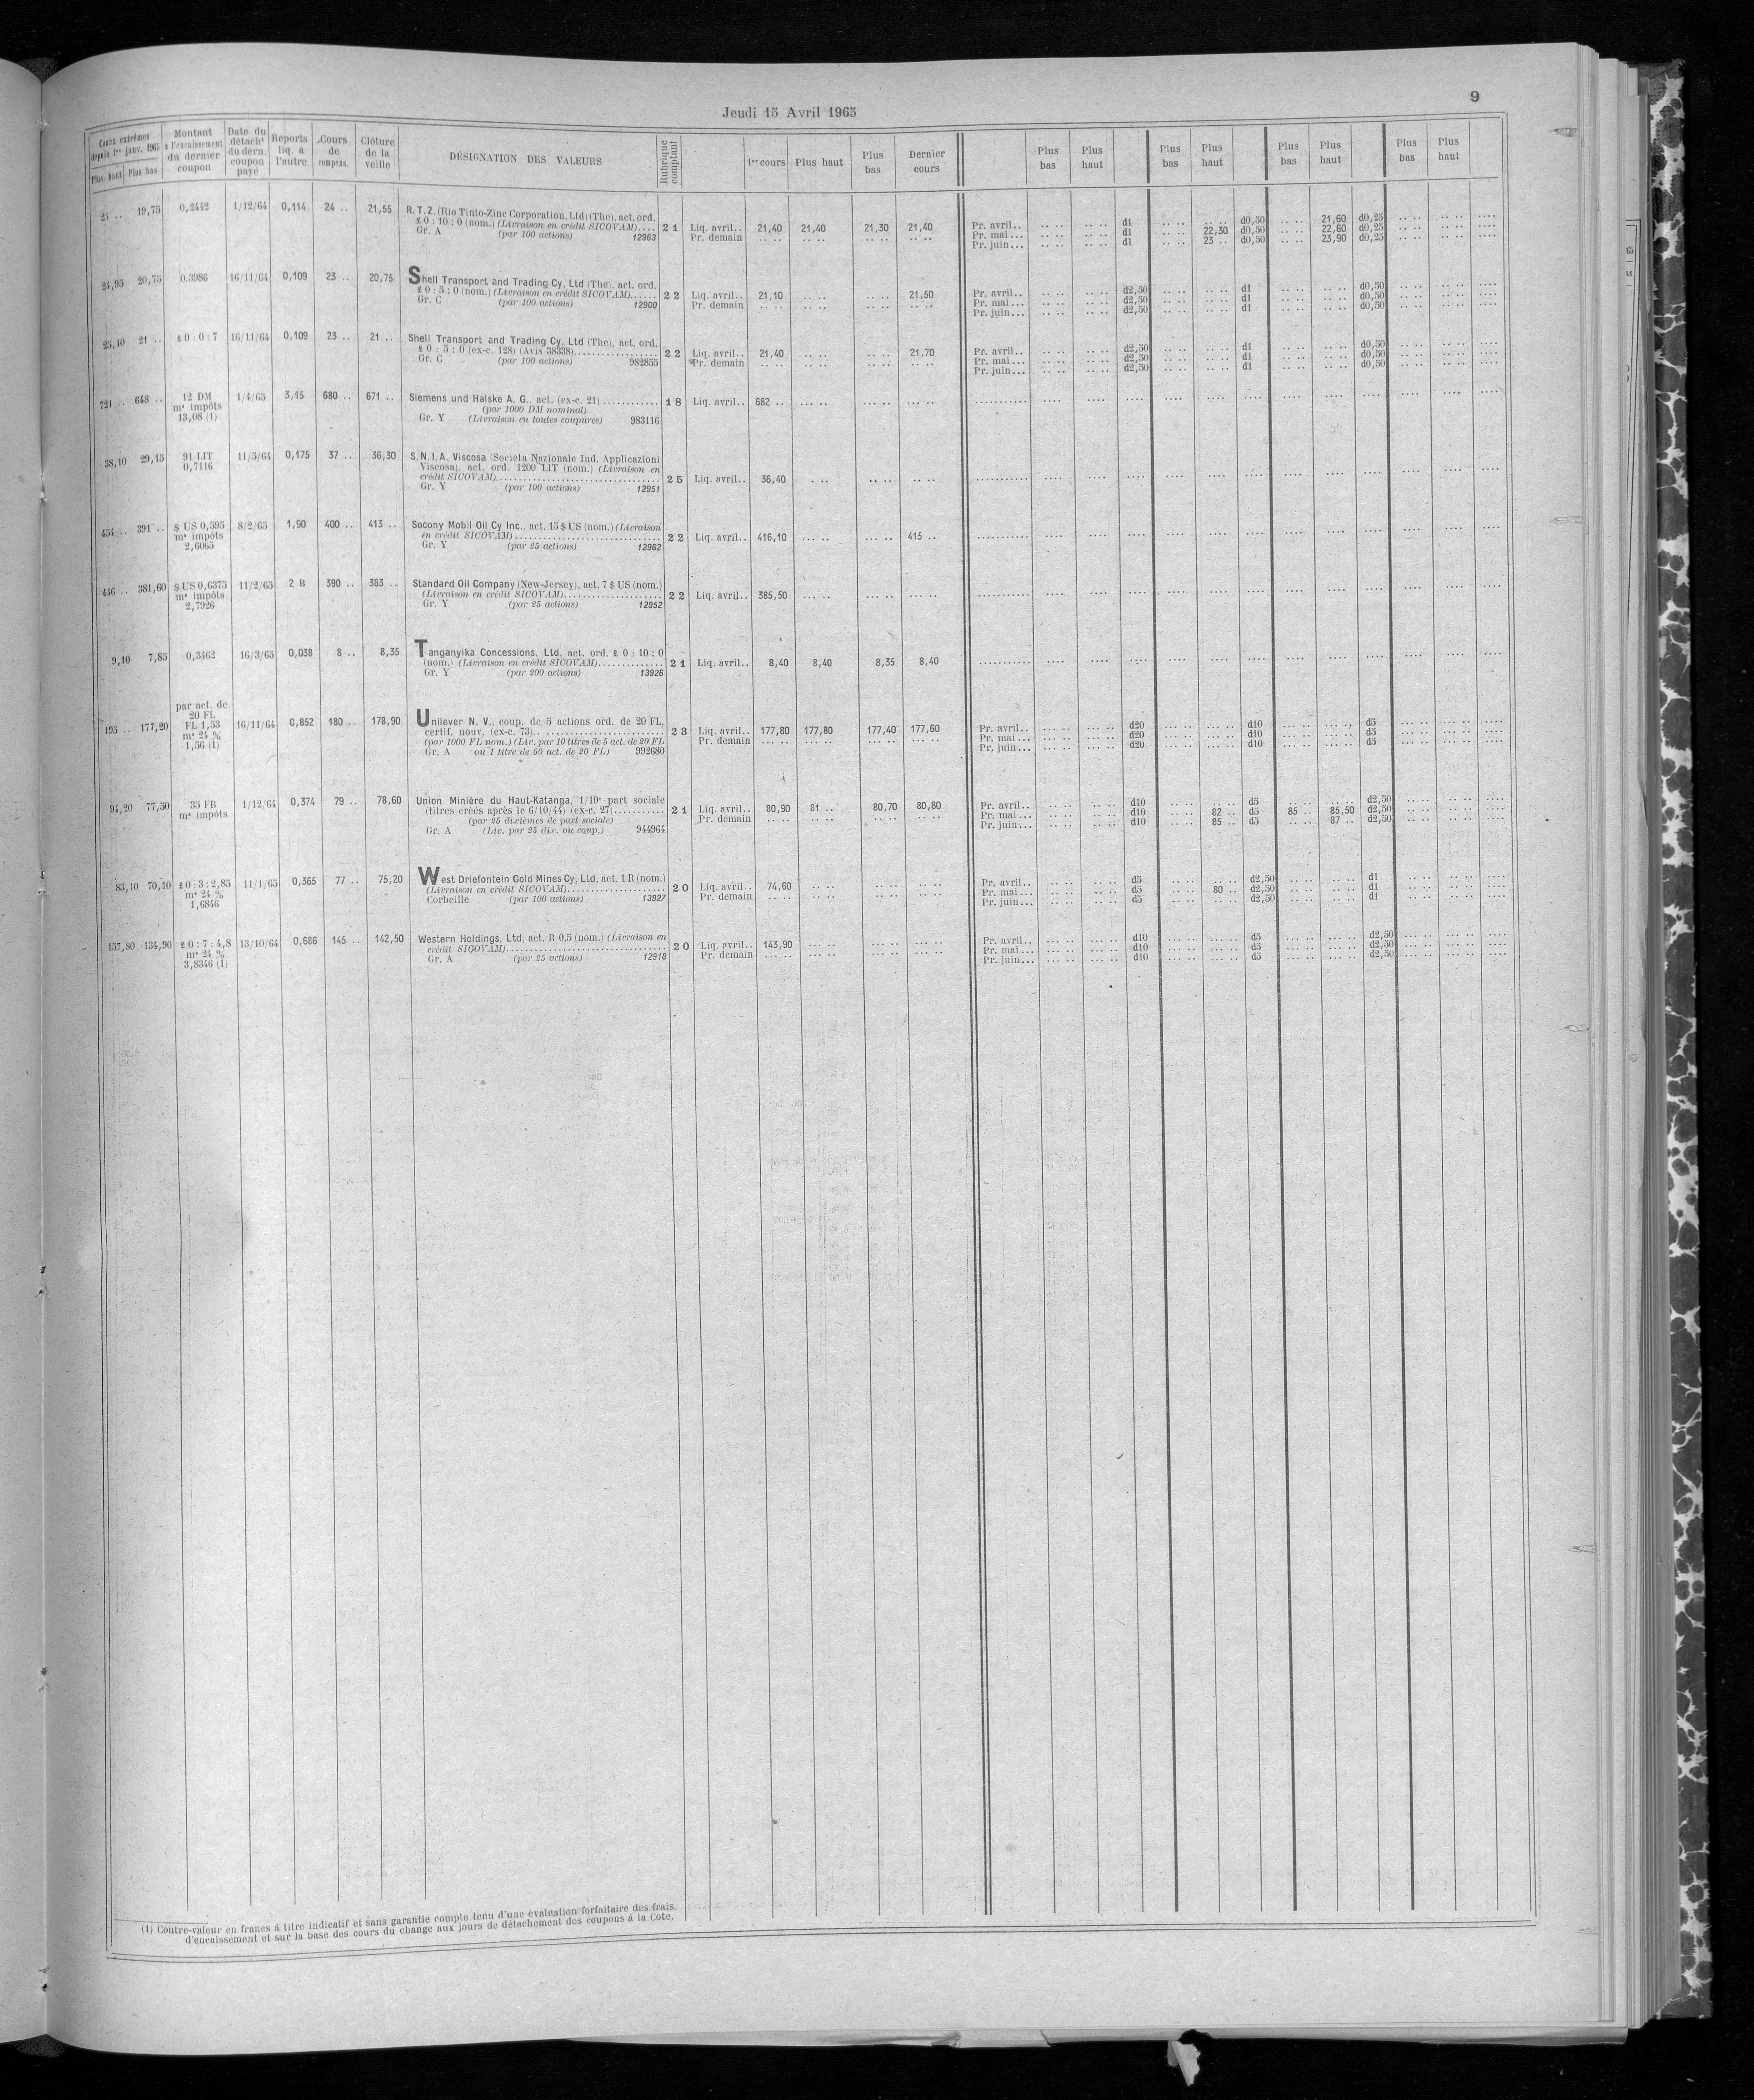 9
Jeudi 15 Avril 1965
Cours extrêmes depuis 1er janv. 1965 Plus haut Plus bas | Montant à l'encaissement du dernier coupon | Date du détacht du dern. coupon payé | Reports liq. à l'autre | Cours de compens. | Clôture de la veille | DÉSIGNATION DES VALEURS | Rubrique comptant | 1er cours | Plus haut | Plus bas | Dernier cours | Plus bas | Plus haut | Plus bas | Plus haut | Plus bas | Plus haut | Plus bas | Plus haut
24 .. 19,75 0,2442 1/12/64 0,114 24 .. 21,55 R.T.Z. (Rio Tinto-Zinc Corporation, Ltd) (The), act. ord.
£ 0 : 10 : 0 (nom.) (Livraison en crédit SICOVAM).... 21 Liq. avril.. 21,40 21,40 21,30 21,40 Pr. avril.. d1 d0,50 21,60 d0,25
Gr. A (par 100 actions) 12963 Pr. demain Pr. mai... d1 22,30 d0,50 22,60 d0,25
Pr. juin... d1 23 .. d0,50 23,90 d0,25
24,95 20,75 0,3986 16/11/64 0,109 23 .. 20,75 Shell Transport and Trading Cy, Ltd (The), act. ord.
£ 0 : 5 : 0 (nom.) (Livraison en crédit SICOVAM)...... 22 Liq. avril.. 21,10 21,50 Pr. avril.. d2,50 d1 d0,50
Gr. C (par 100 actions) 12900 Pr. demain Pr. mai... d2,50 d1 d0,50
Pr. juin... d2,50 d1 d0,50
25,10 21 .. £ 0 : 0 : 7 16/11/64 0,109 23 .. 21 .. Shell Transport and Trading Cy, Ltd (The), act. ord.
£ 0 : 5 : 0 (ex-c. 128) (Avis 38338)................ 22 Liq. avril.. 21,40 21,70 Pr. avril.. d2,50 d1 d0,50
Gr. C (par 100 actions) 982855 Pr. demain Pr. mai... d2,50 d1 d0,50
Pr. juin... d2,50 d1 d0,50
721 .. 648 .. 12 DM 1/4/65 3,15 680 .. 671 .. Siemens und Halske A. G., act. (ex-c. 21)............ 18 Liq. avril.. 682 ..
ms impôts (par 1000 DM nominal)
13,08 (1) Gr. Y (Livraison en toutes coupures) 983116
38,10 29,15 91 LIT 11/5/64 0,175 37 .. 36,30 S.N.I.A. Viscosa (Societa Nazionale Ind. Applicazioni
0,7116 Viscosa), act. ord. 1200 LIT (nom.) (Livraison en
crédit SICOVAM)................ 25 Liq. avril.. 36,40
Gr. Y (par 100 actions) 12951
454 .. 391 .. $ US 0,595 8/2/65 1,90 400 .. 413 .. Socony Mobil Oil Cy Inc., act. 15 $ US (nom.) (Livraison
ms impôts en crédit SICOVAM)................ 22 Liq. avril.. 416,10 415 ..
2,6065 Gr. Y (par 25 actions) 12962
446 .. 381,60 $ US 0,6375 11/2/65 2 B 390 .. 383 .. Standard Oil Company (New-Jersey), act. 7 $ US (nom.)
ms impôts (Livraison en crédit SICOVAM)................ 22 Liq. avril.. 385,50
2,7926 Gr. Y (par 25 actions) 12952
9,10 7,85 0,3462 16/3/65 0,038 8 .. 8,35 Tanganyika Concessions, Ltd, act. ord. £ 0 : 10 : 0
(nom.) (Livraison en crédit SICOVAM)............. 21 Liq. avril.. 8,40 8,40 8,35 8,40
Gr. Y (par 200 actions) 13926
par act. de
20 FL
195 .. 177,20 FL 1,53 16/11/64 0,852 180 .. 178,90 Unilever N. V., coup. de 5 actions ord. de 20 FL,
ms 24 % certif. nouv. (ex-c. 73)................ 23 Liq. avril.. 177,80 177,80 177,40 177,60 Pr. avril.. d20 d10 d5
1,56 (1) (par 1000 FL nom.) (Liv. par 10 titres de 5 act. de 20 FL Pr. demain Pr. mai... d20 d10 d5
Gr. A ou 1 titre de 50 act. de 20 FL) 992680 Pr. juin... d20 d10 d5
94,20 77,50 35 FB 1/12/64 0,374 79 .. 78,60 Union Minière du Haut-Katanga, 1/10e part sociale
ms impôts (titres créés après le 6/10/44) (ex-c. 27)........... 21 Liq. avril.. 80,90 81 .. 80,70 80,80 Pr. avril.. d10 d5 d2,50
(par 25 dixièmes de part sociale) Pr. demain Pr. mai... d10 82 .. d5 85 .. 85,50 d2,50
Gr. A (Liv. par 25 dix. ou coup.) 944964 Pr. juin... d10 85 .. d5 87 .. d2,50
83,10 70,10 £ 0 : 3 : 2,85 11/1/65 0,365 77 .. 75,20 West Driefontein Gold Mines Cy, Ltd, act. 1 R (nom.)
ms 24 % (Livraison en crédit SICOVAM)................ 20 Liq. avril.. 74,60 Pr. avril.. d5 d2,50 d1
1,6846 Corbeille (par 100 actions) 13927 Pr. demain Pr. mai... d5 80 .. d2,50 d1
Pr. juin... d5 d2,50 d1
157,80 134,90 £ 0 : 7 : 4,8 13/10/64 0,686 145 .. 142,50 Western Holdings, Ltd, act. R 0,5 (nom.) (Livraison en
ms 24 % crédit SICOVAM)................ 20 Liq. avril.. 143,90 Pr. avril.. d10 d5 d2,50
3,8346 (1) Gr. A (par 25 actions) 12918 Pr. demain Pr. mai... d10 d5 d2,50
Pr. juin... d10 d5 d2,50
(1) Contre-valeur en francs à titre indicatif et sans garantie compte tenu d'une évaluation forfaitaire des frais
d'encaissement et sur la base des cours du change aux jours de détachement des coupons à la Cote.